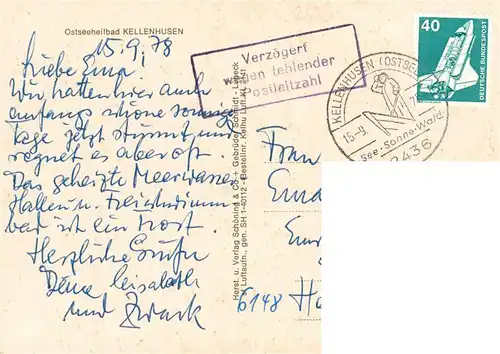 Ostseeheilbad KELLENHUSEN
15.9.78
Liebe
Wir hatten hier auch
anfangs schöne sonnige
Tage jetzt stürmt und
regnet es aber oft.
Das geheizte Meerwasser
Hallen u. Freischwimm
bad ist ein Trost.
Herzliche Grüße
Deine
und
Verzögert
wegen fehlender
Postleitzahl
Herst. u. Verlag Schöning & Co + Gebrüder Schmidt · Lübeck
Luftaufn., gen. SH 1-40112 - Bestellnr. Kelhu Luft.KL 1141
40
DEUTSCHE BUNDESPOST
KELLENHUSEN (OSTSEE
15.-9.
See · Sonne · Wald
2436
Frau
6148